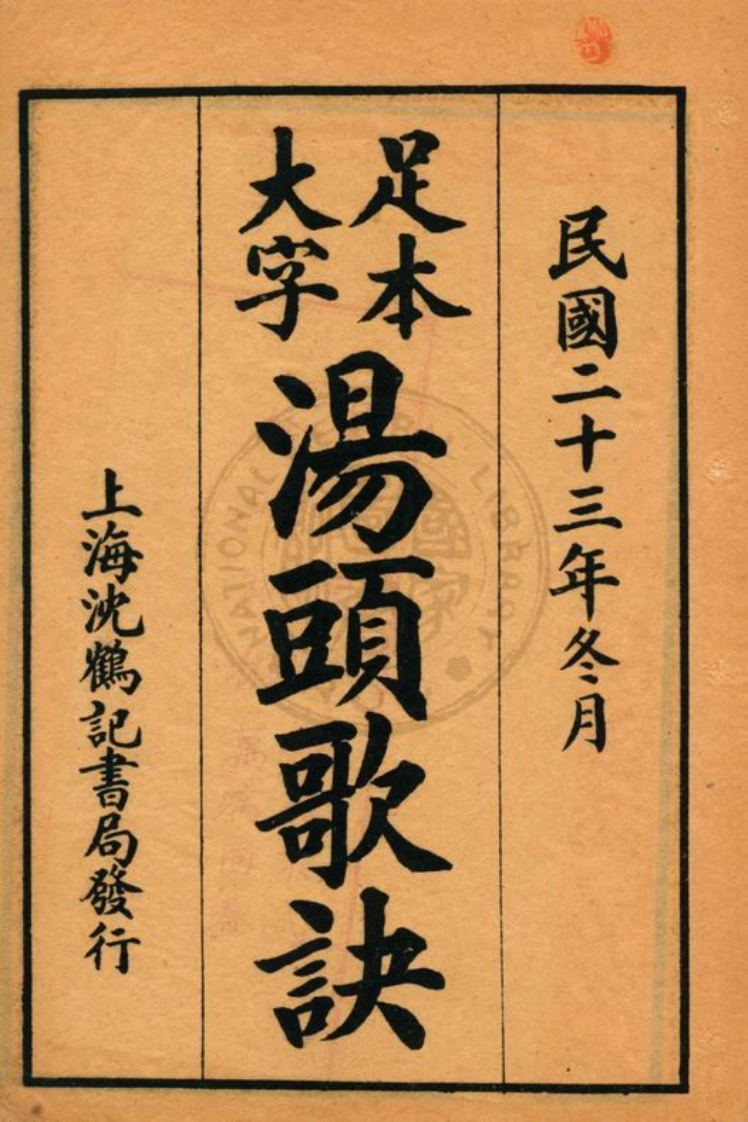 民國二十三年冬月
足本
大字
湯頭歌訣
上海沈鶴記書局發行
NATIONAL LIBRARY